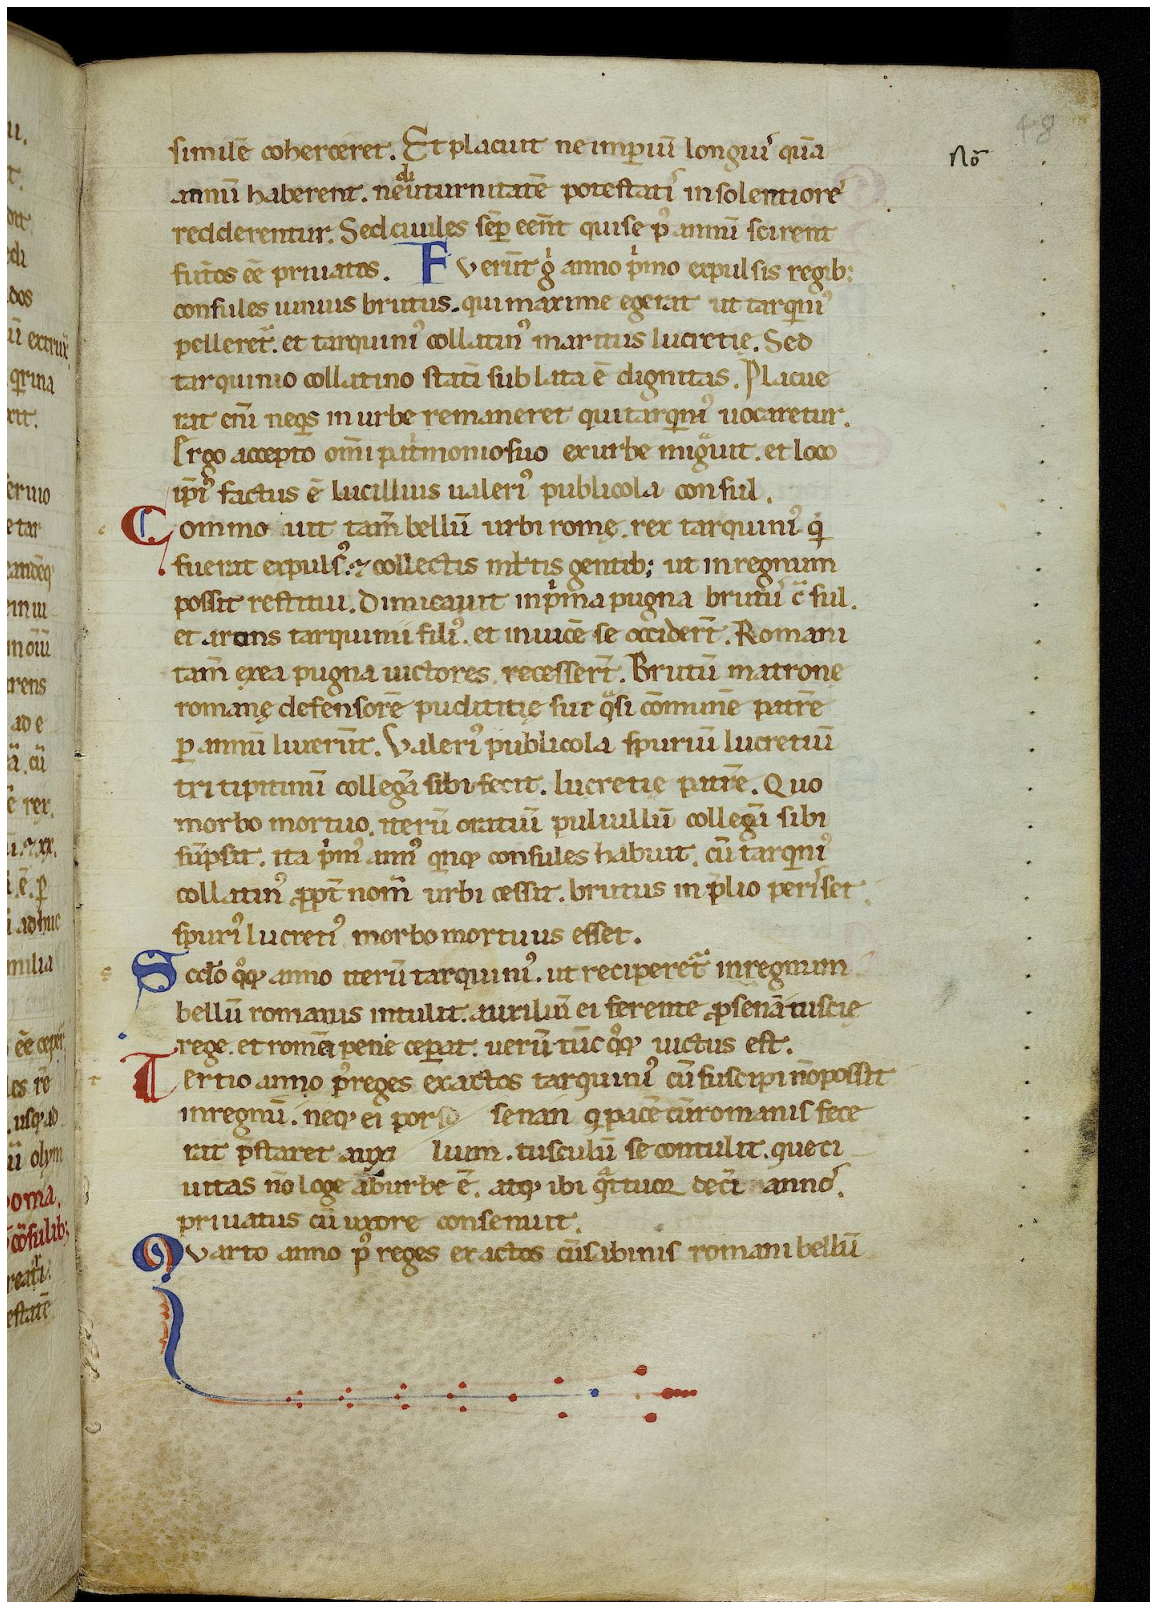 48
No᷒
similē cohercēret. Et placuit ne imꝑiū longiuꝰ quā
annū haberent. ne diuturnitatē potestatiꝰ insolentiorēꝰ
redderentur. Sed ciuiles sēꝑ eēnt qui se ꝑ annū scirent
futōs eē priuatos. Fuerūt gͥ anno pͥmo expulsis regib;
consules iunius brutus. qui maxime egerat ut tarquiniꝰ
pelleret᷑. et tarquiniꝰ collatinꝰ maritus lucretię. Sed
tarquinio collatino statī sublata ē dignitas. Placue
rat enī neqͥs in urbe remaneret qui tarqͥniꝰ uocaretur.
Ergo accepto omī patͥmonio suo ex urbe migͣuit. et loco
ip̄iꝰ factus ē lucilliuis ualeriꝰ publicola consul.
Commo uit tam̄ bellū urbi romę. rex tarquiniꝰ qͥ
fuerat expulsꝰ. ⁊ collectis ml̄tis gentib; ut in regnum
possit restitui. Dimicauit in pͥma pugna brutuꝰ c̄sul.
et arons tarquinii filiꝰ. et inuicē se occidert̄. Romani
tam̄ ex ea pugna uictores recessert̄. Brutū matrone
romanę defensorē pudititię suę qͣsi cōmunē patrē
ꝑ annū luxerūt. Valeriꝰ publicola spuriū lucretiū
tritipitinū collegā sibi fecit. lucretię patrē. Quo
morbo mortuo. iterū oratiū puluillū collegā sibi
sūpsit. ita pͥmꝰ annꝰ qͥnqꝫ consules habuit. cū tarqͥniꝰ
collatinꝰ ꝓpt̄ nom̄ urbi cessit. brutus in p̄lio periꝰset
spuriꝰ lucretiꝰ morbo mortuus esset.
Scd̄o qͦqꝫ anno iterū tarquiniꝰ. ut reciperet᷑ in regnum
bellū romanis intulit. auxiliū ei ferente ꝓsenā tuscię
rege. et romā pene ceꝑat. uerū tūc qͦqꝫ uictus est.
Tertio anno pꝰ reges exactos tarquiniꝰ cū suscipi nō possit
in regnū. neqꝫ ei por senan q pacē cū romanis fece
rat p̄staret auxi lium. tusculū se contulit. que ci
uitas nō loge ab urbe ē. atqꝫ ibi qͣttuor deci annoꝰ.
priuatus cū uxore consenuit.
Quarto anno pꝰ reges exactos cū sibinis romani bellū